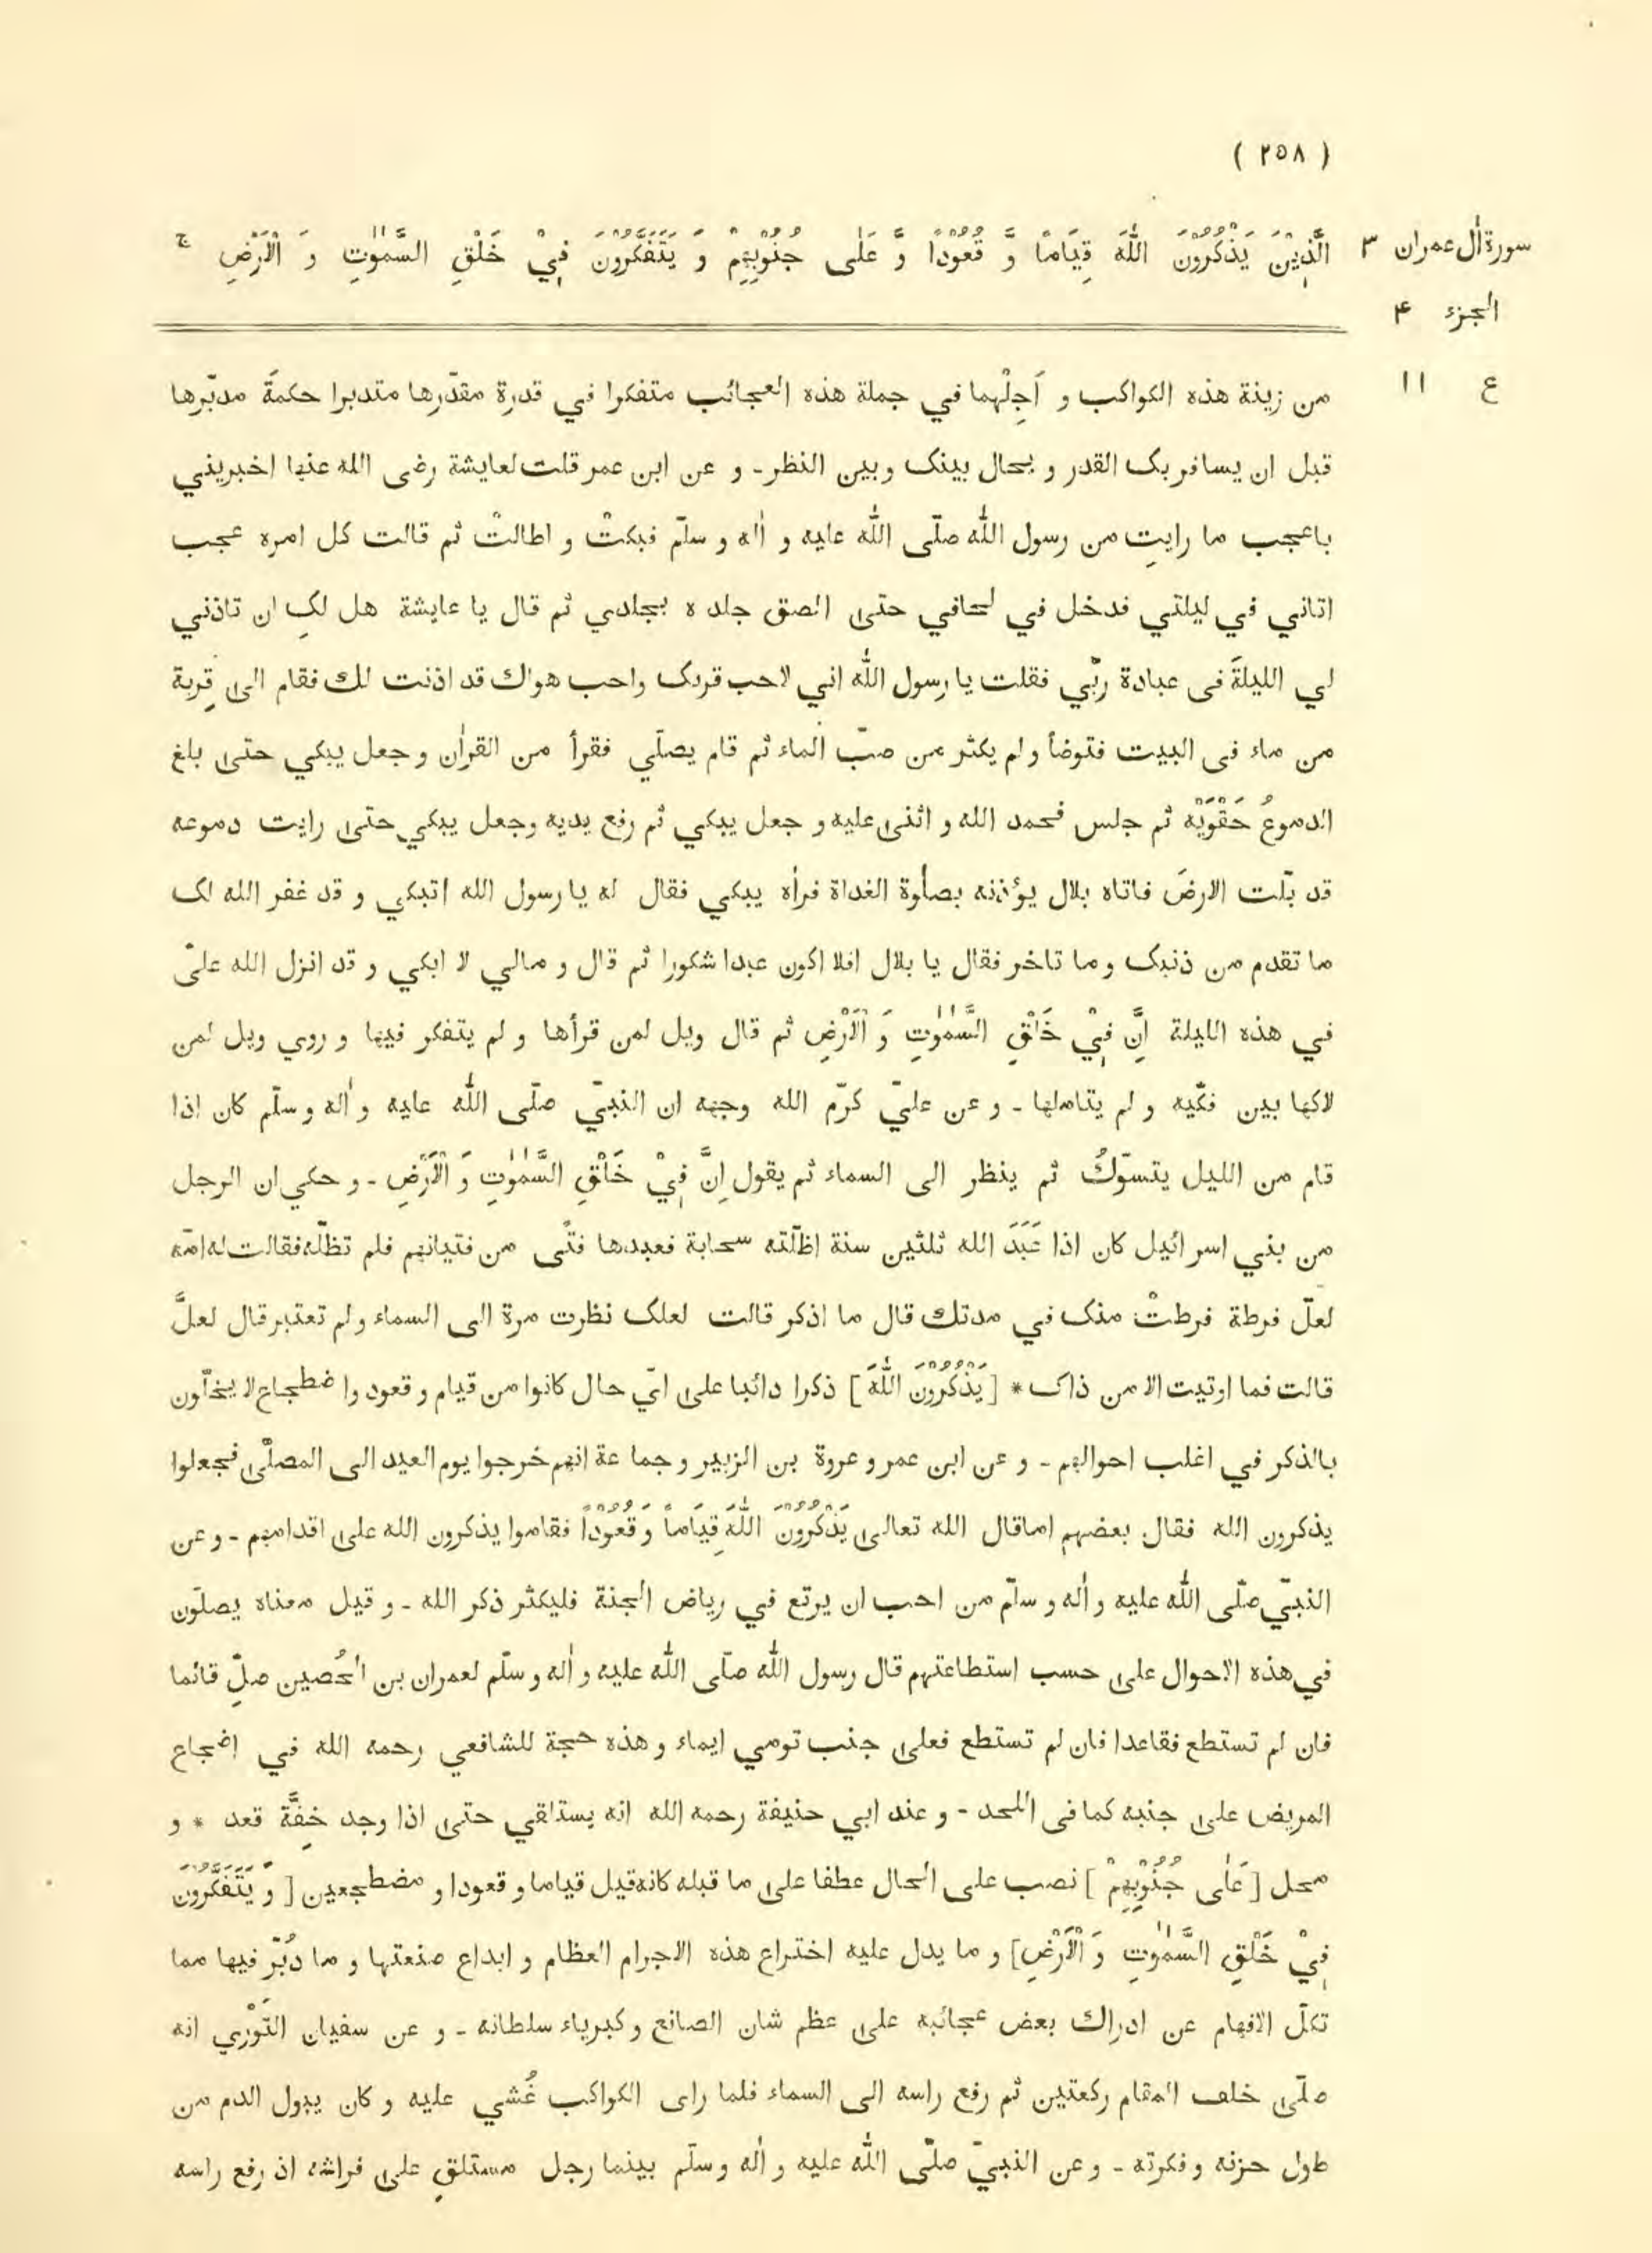 ( ٢٥٨ )
سورة اٰل عمران ٣
الجزء ۴
ع ١١
الَّذِيْنَ يَذْكُرُوْنَ اللّٰهَ قِيَامًا وَّ قُعُوْدًا وَّ عَلٰى جُنُوْبِهِمْ وَ يَتَفَكَّرُوْنَ فِيْ خَلْقِ السَّمٰوٰتِ وَ الْاَرْضِ ج
من زينة هذه الكواكب و اَجِلْهما في جملة هذه العجائب متفكرا في قدرة مقدّرها متدبرا حكمةَ مدبّرها
قبل ان يسافر بک القدر و يحال بينک وبين النظر ـ و عن ابن عمر قلت لعايشة رضى الله عنها اخبريني
باعجب ما رايتِ من رسول اللّٰه صلّى اللّٰه عليه و اٰله و سلّم فبكتْ و اطالتْ ثم قالت كل امره عجب
اتاني في ليلتي فدخل في لحافي حتى الصق جلده بجلدي ثم قال يا عايشة هل لکِ ان تاذني
لي الليلةَ فى عبادة ربّي فقلت يا رسول اللّٰه اني لاحب قربک واحب هواك قد اذنت لك فقام الى قِربة
من ماء فى البيت فتوضأ ولم يكثر من صبّ الماء ثم قام يصلّي فقرأ من القراٰن وجعل يبكي حتى بلغ
الدموعُ حَقْوَيْه ثم جلس فحمد الله و اثنى عليه و جعل يبكي ثم رفع يديه وجعل يبكي حتى رايت دموعه
قد بلّت الارضَ فاتاه بلال يؤذنه بصلٰوة الغداة فراٰه يبكي فقال له يا رسول الله اتبكي و قد غفر الله لک
ما تقدم من ذنبک وما تاخر فقال يا بلال افلا اكون عبدا شكورا ثم قال و مالي لا ابكي و قد انزل الله عليّ
في هذه الليلة اِنَّ فِيْ خَلْقِ السَّمٰوٰتِ وَ الْاَرْضِ ثم قال ويل لمن قرأها و لم يتفكر فيها و روي ويل لمن
لاكها بين فكّيه و لم يتاملها ـ و عن عليّ كرّم الله وجهه ان النبيّ صلّى اللّٰه عليه و اٰله و سلّم كان اذا
قام من الليل يتسوّكُ ثم ينظر الى السماء ثم يقول اِنَّ فِيْ خَلْقِ السَّمٰوٰتِ وَ الْاَرْضِ ـ و حكي ان الرجل
من بني اسرائيل كان اذا عَبَدَ الله ثلثين سنة اظلّته سحابة فعبدها فتًى من فتيانهم فلم تظلّه فقالت له امّه
لعلّ فرطة فرطتْ منک في مدتك قال ما اذكر قالت لعلک نظرت مرة الى السماء ولم تعتبر قال لعلَّ
قالت فما اوتيت الا من ذاک * [ يَذْكُرُوْنَ اللّٰهَ ] ذكرا دائبا على ايّ حال كانوا من قيام و قعود واضطجاع لا يخلّون
بالذكر في اغلب احوالهم ـ و عن ابن عمر و عروة بن الزبير و جماعة انهم خرجوا يوم العيد الى المصلّى فجعلوا
يذكرون الله فقال بعضهم اما قال الله تعالى يَذْكُرُوْنَ اللّٰهَ قِيَاماً وَ قُعُوْداً فقاموا يذكرون الله على اقدامهم ـ وعن
النبيّ صلّى اللّٰه عليه و اٰله و سلّم من احب ان يرتع في رياض الجنة فليكثر ذكر الله ـ و قيل معناه يصلّون
في هذه الاحوال على حسب استطاعتهم قال رسول اللّٰه صلّى اللّٰه عليه و اٰله و سلّم لعمران بن الحُصين صلِّ قائما
فان لم تستطع فقاعدا فان لم تستطع فعلى جنب تومي ايماء و هذه حجة للشافعي رحمه الله في اضجاع
المريض على جنبه كما فى اللحد ـ و عند ابي حنيفة رحمه الله انه يستلقي حتى اذا وجد خِفَّة قعد * و
محل [ عَلٰى جُنُوْبِهِمْ ] نصب على الحال عطفا على ما قبله كانه قيل قياما و قعودا و مضطجعين [ وَ يَتَفَكَّرُوْنَ
فِيْ خَلْقِ السَّمٰوٰتِ وَ الْاَرْضِ ] و ما يدل عليه اختراع هذه الاجرام العظام و ابداع صنعتها و ما دُبّر فيها مما
تكلّ الافهام عن ادراك بعض عجائبه على عظم شان الصانع و كبرياء سلطانه ـ و عن سفيان الثَّوْري انه
صلّى خلف المقام ركعتين ثم رفع راسه الى السماء فلما راى الكواكب غُشي عليه و كان يبول الدم من
طول حزنه و فكرته ـ و عن النبيّ صلّى اللّٰه عليه و اٰله و سلّم بينما رجل مستلقٍ على فراشه اذ رفع راسه